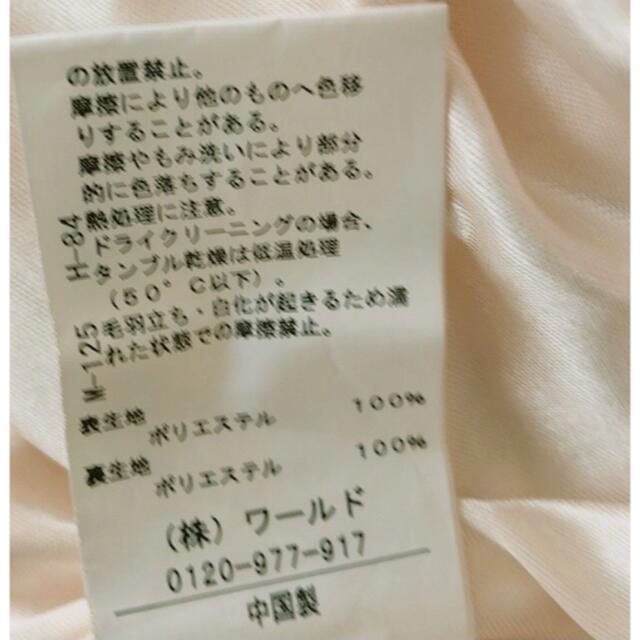 の放置禁止。
摩擦により他のものへ色移
りすることがある。
摩擦やもみ洗いにより部分
的に色落ちすることがある。
H-84 熱処理に注意。
ドライクリーニングの場合、
タンブル乾燥は低温処理
(50°C以下)。
W-125 毛羽立ち・白化が起きるため濡
れた状態での摩擦禁止。
表生地
ポリエステル 100%
裏生地
ポリエステル 100%
(株) ワールド
0120-977-917
中国製